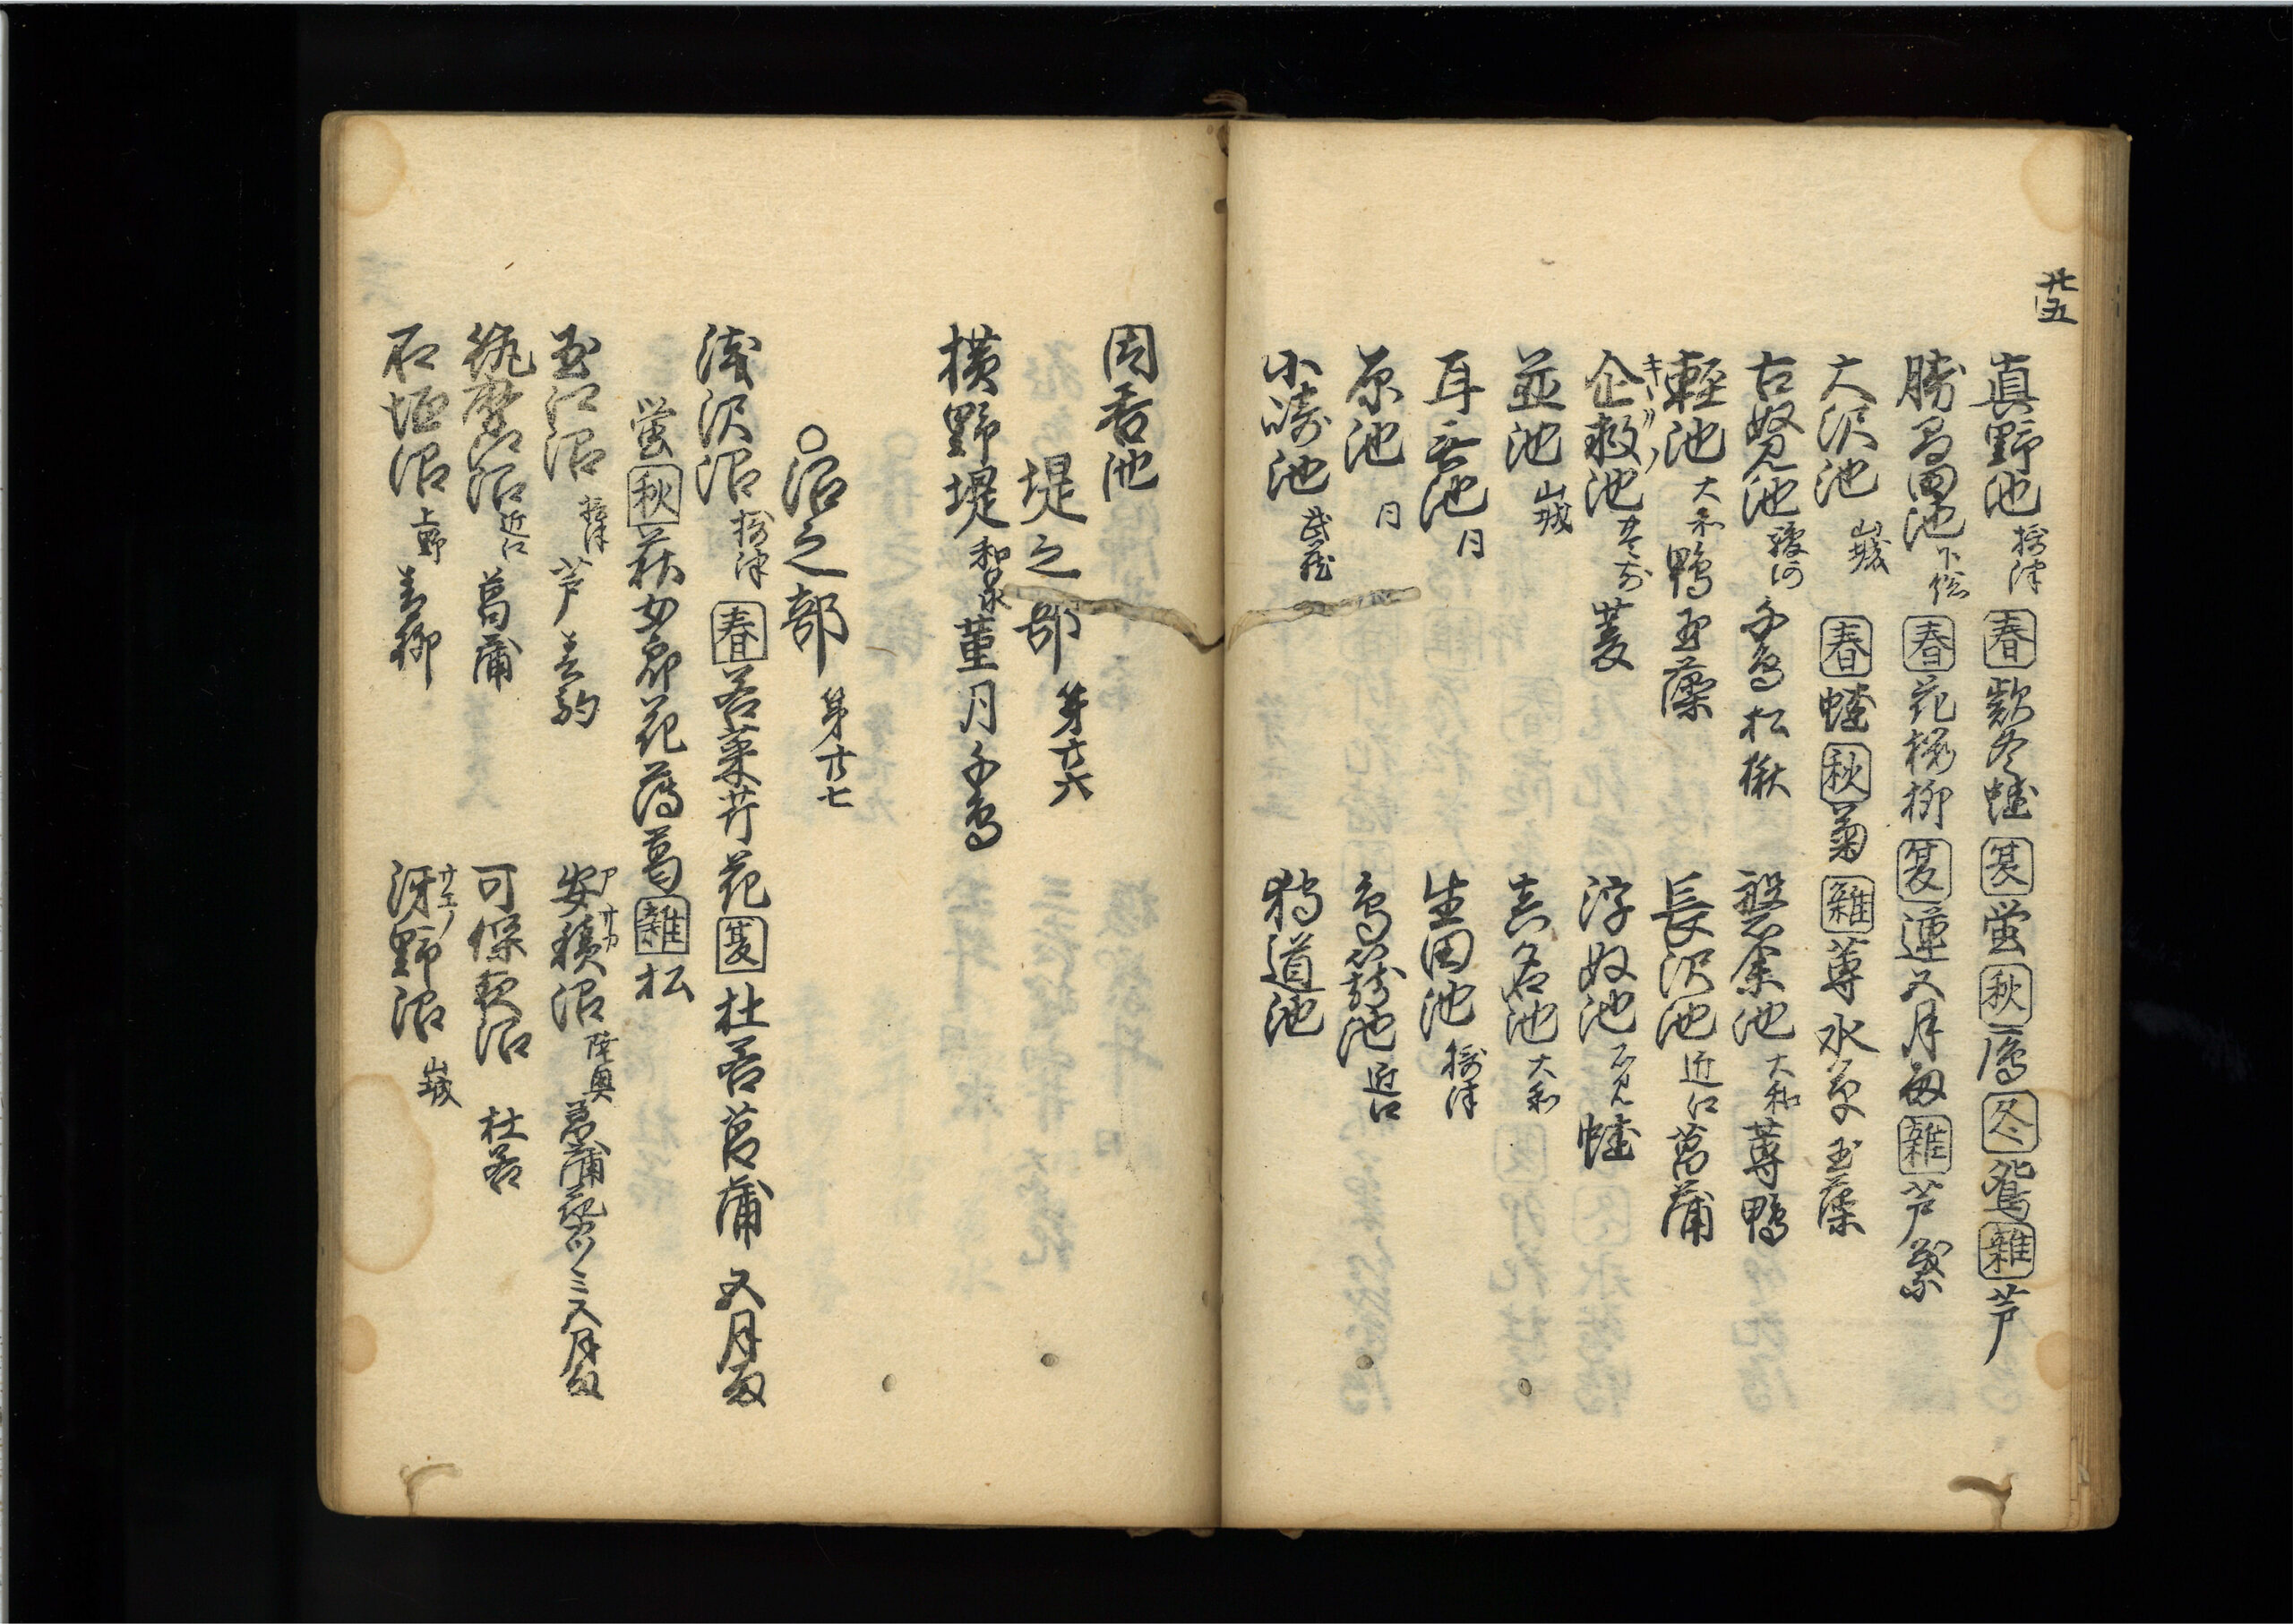 廿五
眞野池 摂津 春 欵冬 蛙 夏 蛍 秋 鳫 冬 鴛 雑 芦
勝間田池 下総 春 花 桜 柳 夏 蓮 五月雨 雑 芦 蘩
大沢池 山城 春 蛙 秋 菊 雑 蓴 水草 玉藻
古奴見池 駿河 千鳥 松 楸 磐余池 大和 蓴 鴨
軽池 大和 鴨 玉藻 長沢池 近江 菖蒲
企救池 キクノ 豊前 菱 浮奴池 石見 蛙
並池 山城 真名池 大和
耳無池 月 生田池 摂津
原池 月 鳥籠池 近江
小崎池 武蔵 狩道池
周吝池
堤之部 第廿六
横野堤 和泉 菫 月 千鳥
○沼之部 第廿七
浅沢沼 摂津 春 若菜 芹 花 夏 杜若 菖蒲 五月雨
蛍 秋 萩 女郎花 薄 葛 雑 松
玉江沼 摂津 芦 春駒 安積沼 アサカ 陸奥 菖蒲 花カツミ 五月雨
筑摩江沼 近江 菖蒲 可保夜沼 杜若
石垣沼 上野 青柳 沢野沼 サエノ 山城